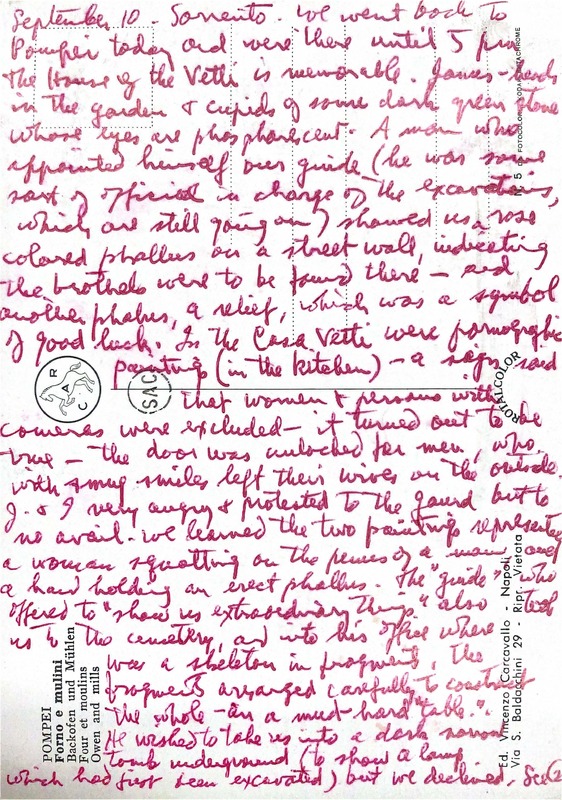 September 10 - Sorrento. We went back to
Pompei today and were there until 5 pm.
The House of the Vetti is memorable. Janus-heads
in the garden & cupids of some dark green stone
whose eyes are phosphorescent. A man who
appointed himself our guide (he was some
sort of official in charge of the excavations,
which are still going on) showed us a rose
colored phallus on a street wall, indicating
the brothels were to be found there - and
another phallus, a relief, which was a symbol
of good luck. In the Casa Vetti were pornographic
paintings (in the kitchen) - a sign said
that women & persons with
cameras were excluded - it turned out to be
true - the door was unlocked for men, who,
with smug smiles left their wives on the outside.
J. & I very angry & protested to the gaurd but to
no avail. We learned the two paintings represented
a woman squatting on the penis of a man and
a hand holding an erect phallus. The "guide" who
offered to "show us extraordinary things" also took
us to the cemetery, and into his office where
was a skeleton in fragments, the
fragments arranged carefully to construct
the whole - on a mud-hard "table".
He wished to take us into a dark narrow
tomb underground (to show a lamp
which had first been excavated) but we declined.
R A C
SAC
ROTALCOLOR
N. 5
FOTOCOLOR KODAK EKTACHROME
POMPEI
Forno e mulini
Backofen und Mühlen
Four et moulins
Owen and mills
Ed. Vincenzo Carcavallo - Napoli
Via S. Baldacchini 29 - Ripr. Vietata